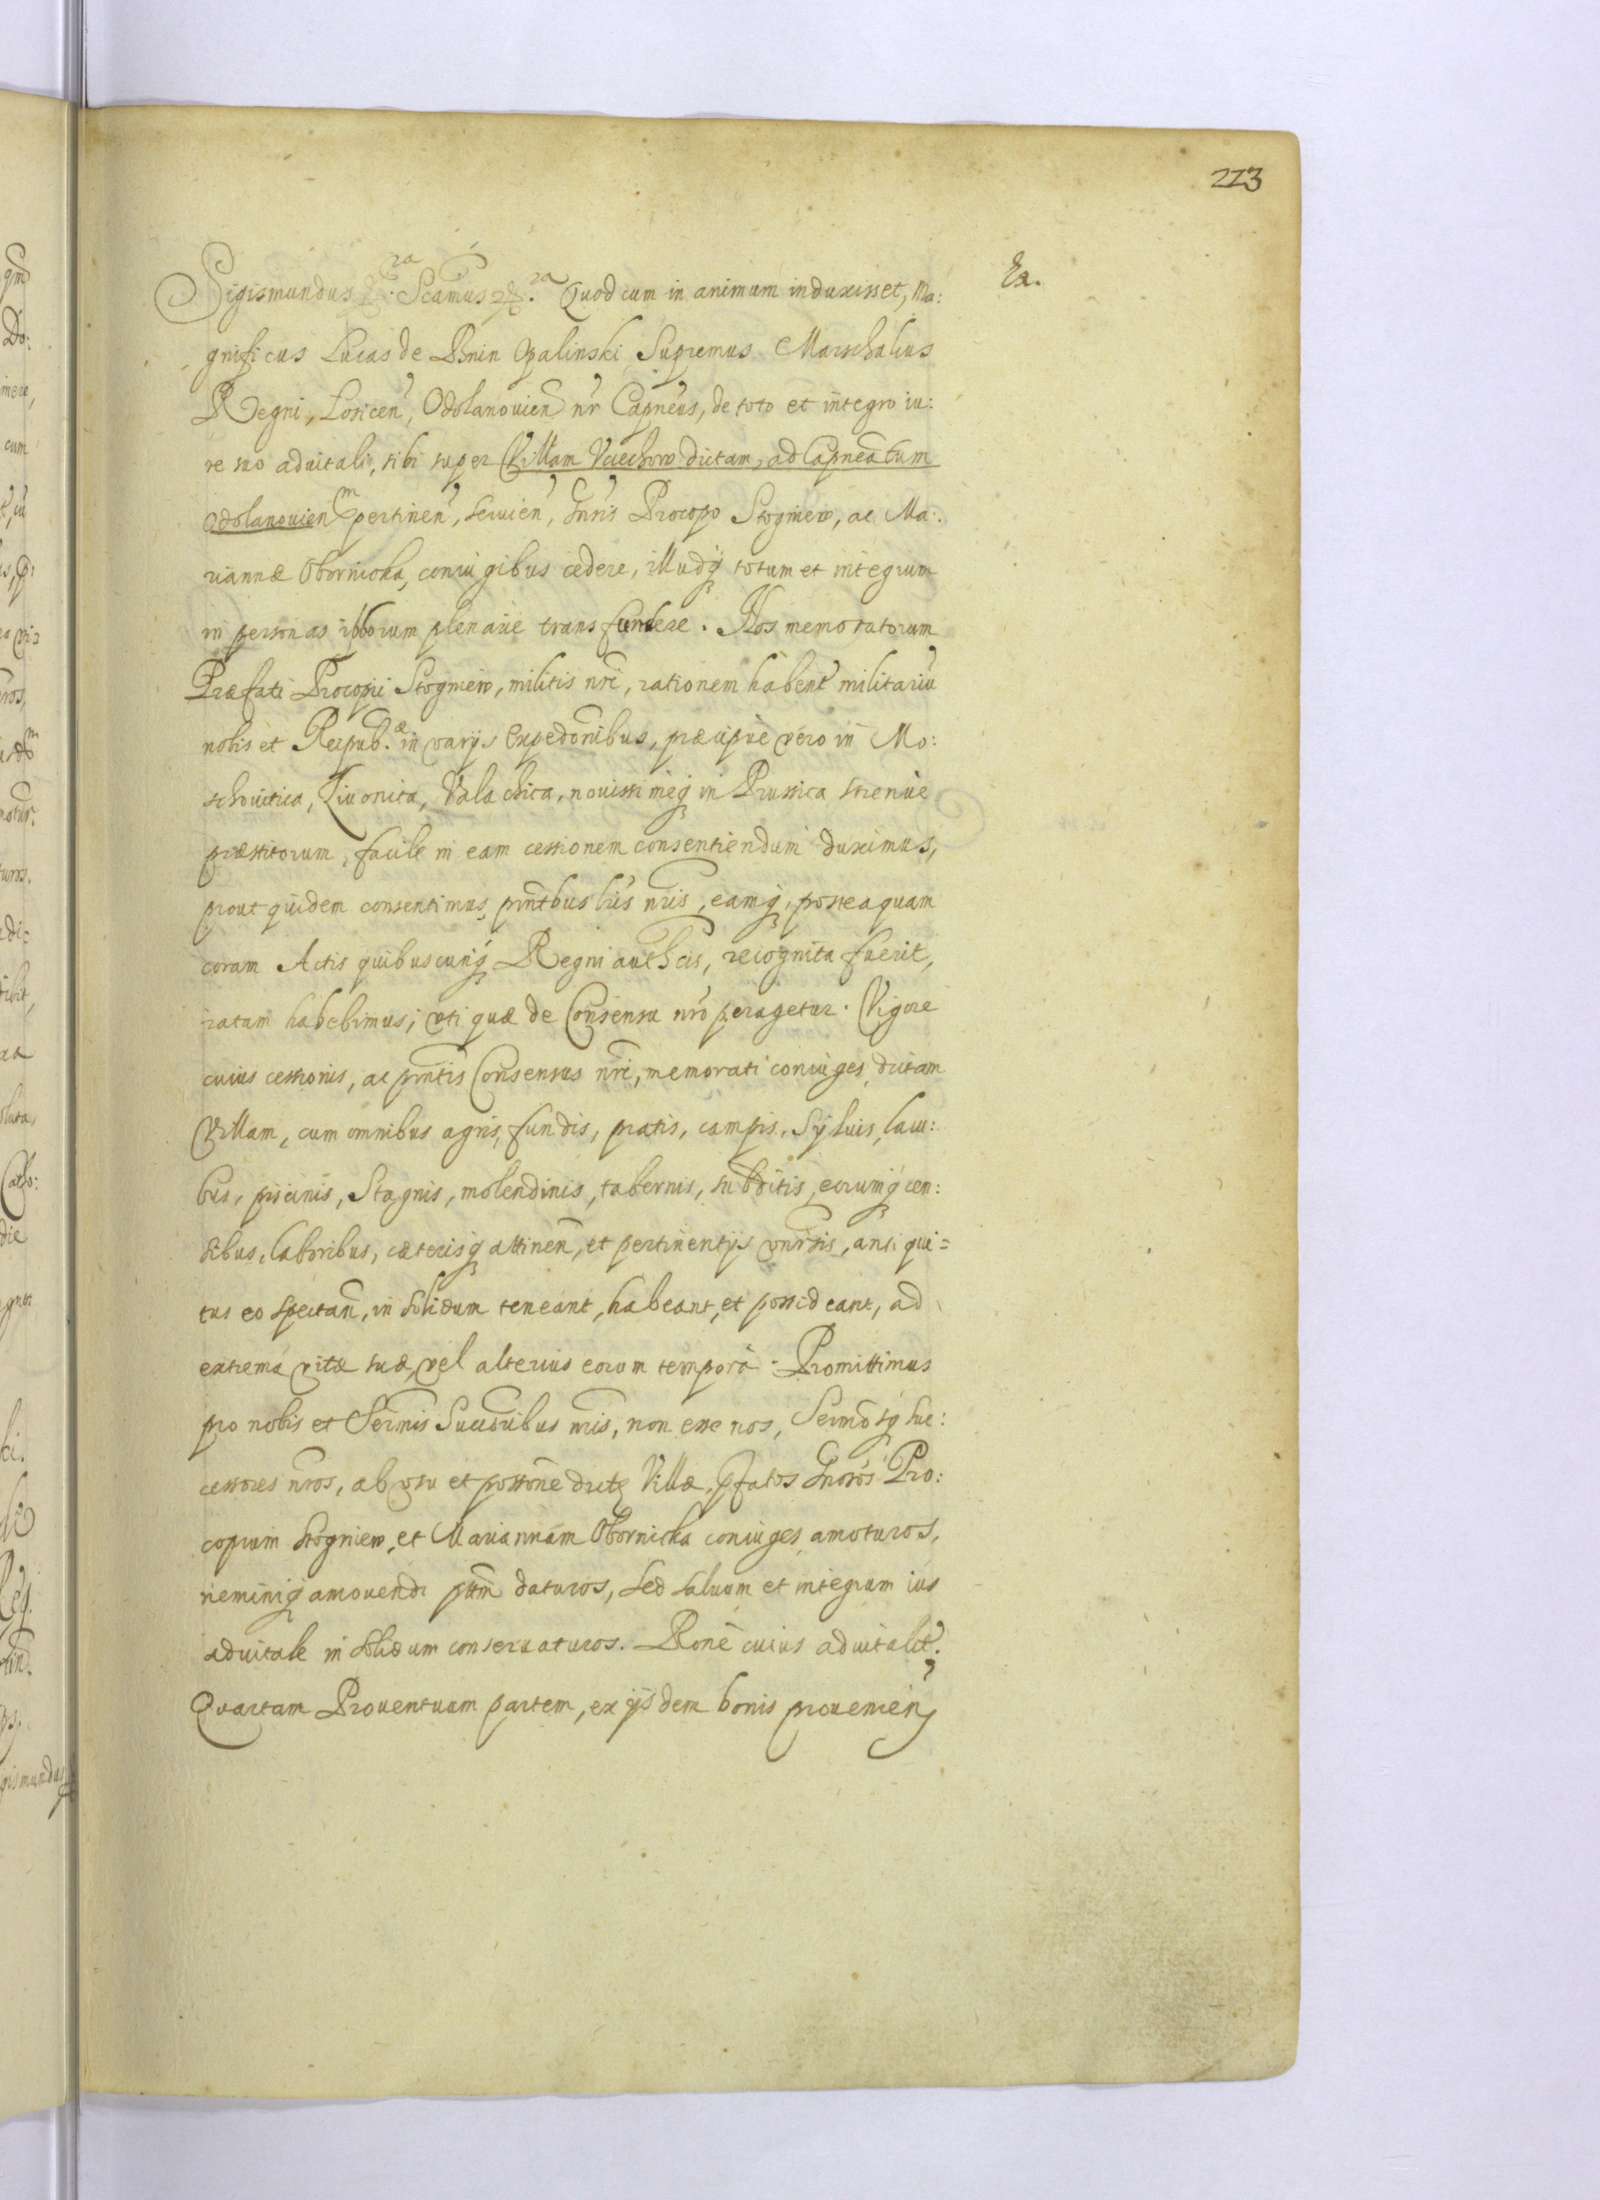 223
Ex.
Sigismundus &c.ra Scamus &c.ra Quod cum in animum induxisset, Ma:
gnificus Lucas de Bnin Opalinski Supremus Marschalcus
Regni, Losicen̄, Odolanouien̄ nr̄ Capn̄eus, de toto et integro iu:
re suo aduitali, sibi super Villam Vciechow dictam, ad Capn̄eatum
Odolanouien̄m pertinen̄, seruien̄, Gn̄sis Procopo Stogniew, ac Ma:
riannæ Obornicka, coniugibus cedere, illudq́ totum et integrum
in personas illorum plenariè transfundere. Nos memoratorum
Præfati Procopii Stogniew, militis nr̄i, rationem haben̄t militariū
nobis et Reipub.æ in varijs Expedōnibus, præcipuè vero in Mo:
schouitica, Liuonica, Valachica, nouissimeq́ in Prussica strenuè
præstitorum, facile in eam cessionem consentiendum duximus,
prout quidem consentimus pn̄tibus lrīs nr̄is, eamq́, posteaquam
coram Actis quibuscunq́ Regni auth̄cis, recognita fuerit,
ratam habebimus; vti quæ de Consensu nr̄o peragetur. Vigore
cuius cessionis, ac pn̄tis Consensus nr̄i, memorati coniuges dictam
Villam, cum omnibus agris, fundis, pratis, campis, Syluis, lacu:
bus, piscinis, Stagnis, molendinis, tabernis, subditis, eorumq́ cen:
sibus, laboribus, cæterisq́ attinen̄, et pertinentijs vnīrsis, antiqui=
tus eo spectan̄, in solidum teneant, habeant, et possideant, ad
extrema vitæ suæ, vel alterius eorum tempora. Promittimus
pro nobis et Serm̄is Succōribus nr̄is, non esse nos, Serm̄osq́ suc:
cessores nr̄os, ab vsu et possōne dictę Villæ, p̄fatos Gn̄osos Pro:
copium Stogniew, et Mariannam Obornicka coniuges, amoturos,
neminiq́ amouendi ptt̄m daturos, sed saluum et integrum ius
aduitale in solidum conseruaturos. Rōne cuius aduitalit̄.
Quartam Prouentuum partem, ex ijsdem bonis prouenien̄